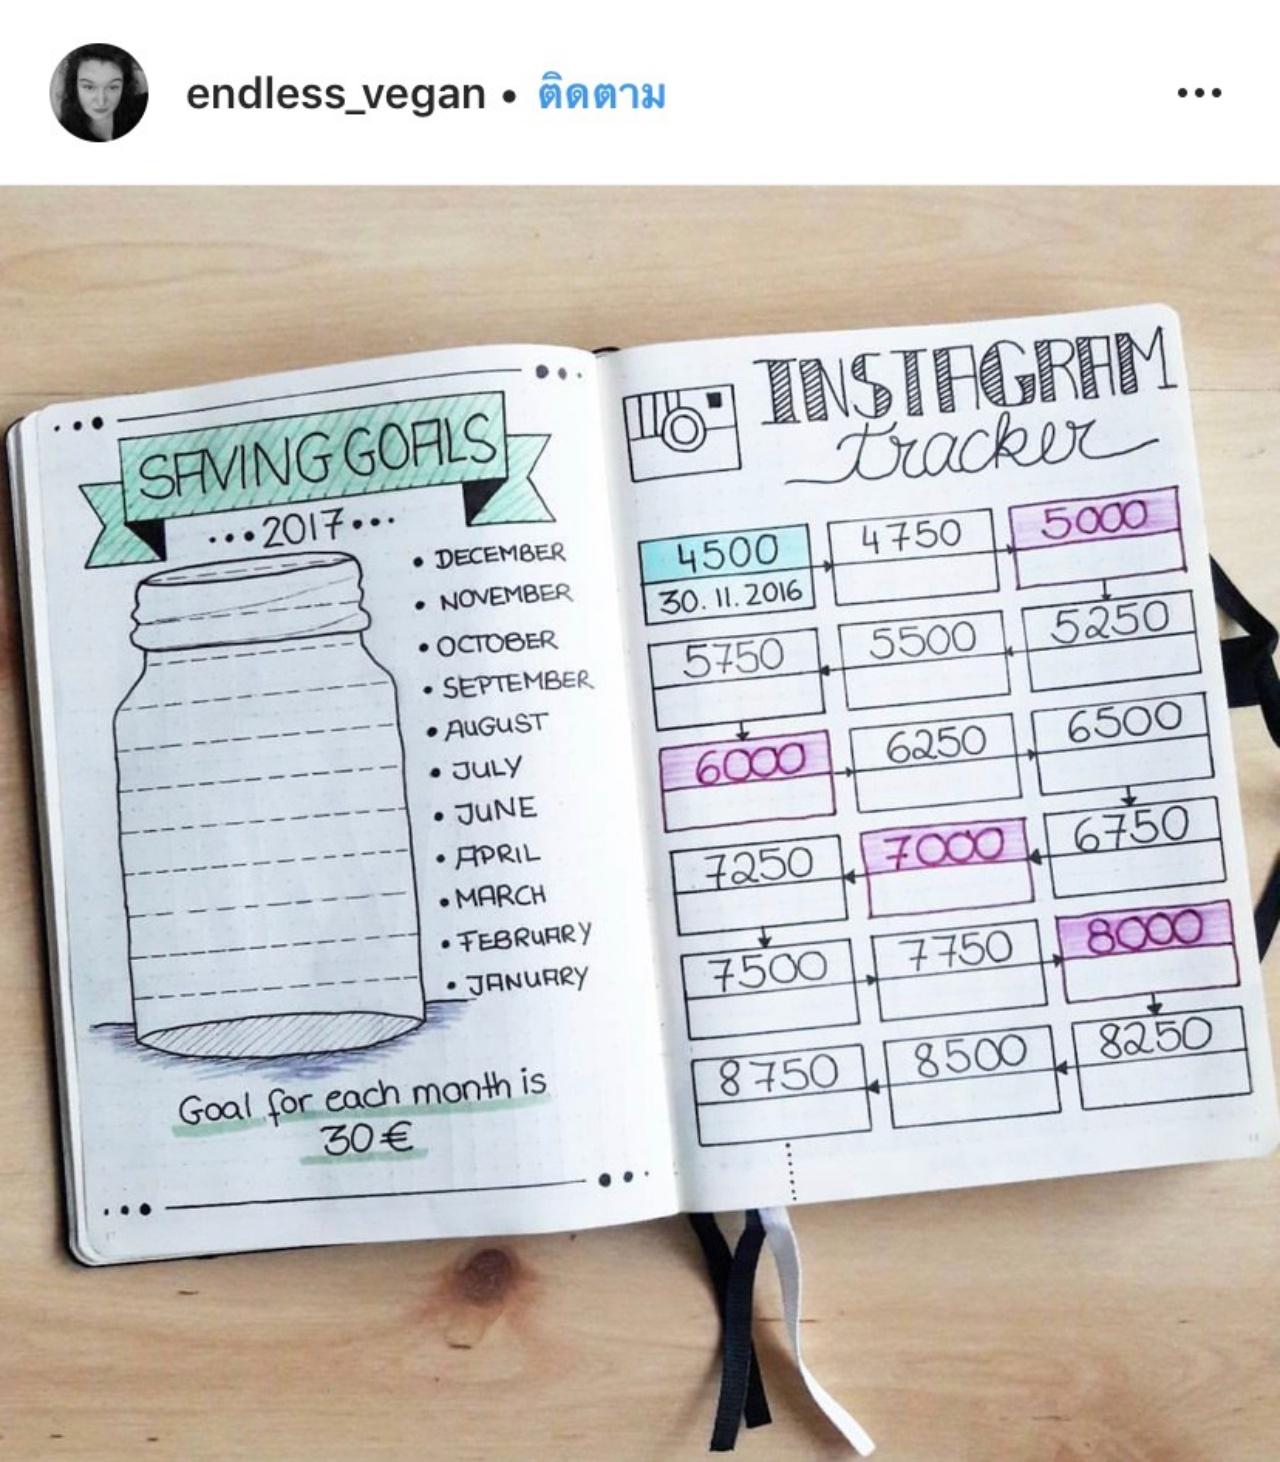 endless_vegan • ติดตาม
SAVING GOALS
...2017...
• DECEMBER
• NOVEMBER
• OCTOBER
• SEPTEMBER
• AUGUST
• JULY
• JUNE
• APRIL
• MARCH
• FEBRUARY
• JANUARY
Goal for each month is
30€
INSTAGRAM
tracker
4500 4750 5000
30.11.2016
5750 5500 5250
6000 6250 6500
7250 7000 6750
7500 7750 8000
8750 8500 8250